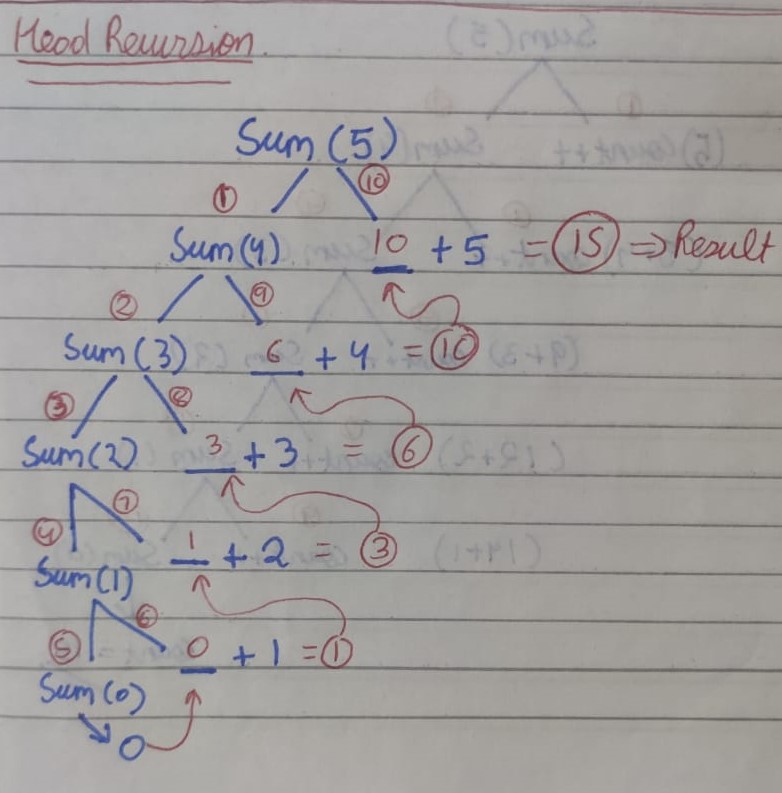 Head Recursion.
Sum(5)
① ⑩
Sum(4) 10 + 5 = 15 ⇒ Result
② ⑨
Sum(3) 6 + 4 = 10
③ ⑧
Sum(2) 3 + 3 = 6
④ ⑦
Sum(1) 1 + 2 = 3
⑤ ⑥
0 + 1 = 1
Sum(0)
0